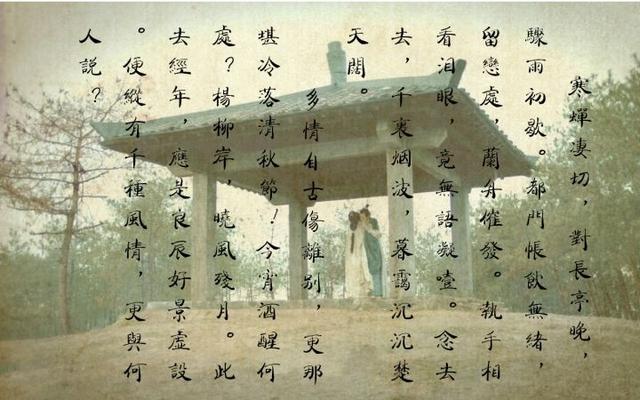 寒蟬凄切，對長亭晚，
驟雨初歇。都門帳飲無緒，
留戀處，蘭舟催發。執手相
看泪眼，竟無語凝噎。念去
去，千裏烟波，暮靄沉沉楚
天闊。
多情自古傷離別，更那
堪冷落清秋節！今宵酒醒何
處？楊柳岸，曉風殘月。此
去經年，應是良辰好景虛設
。便縱有千種風情，更與何
人説？